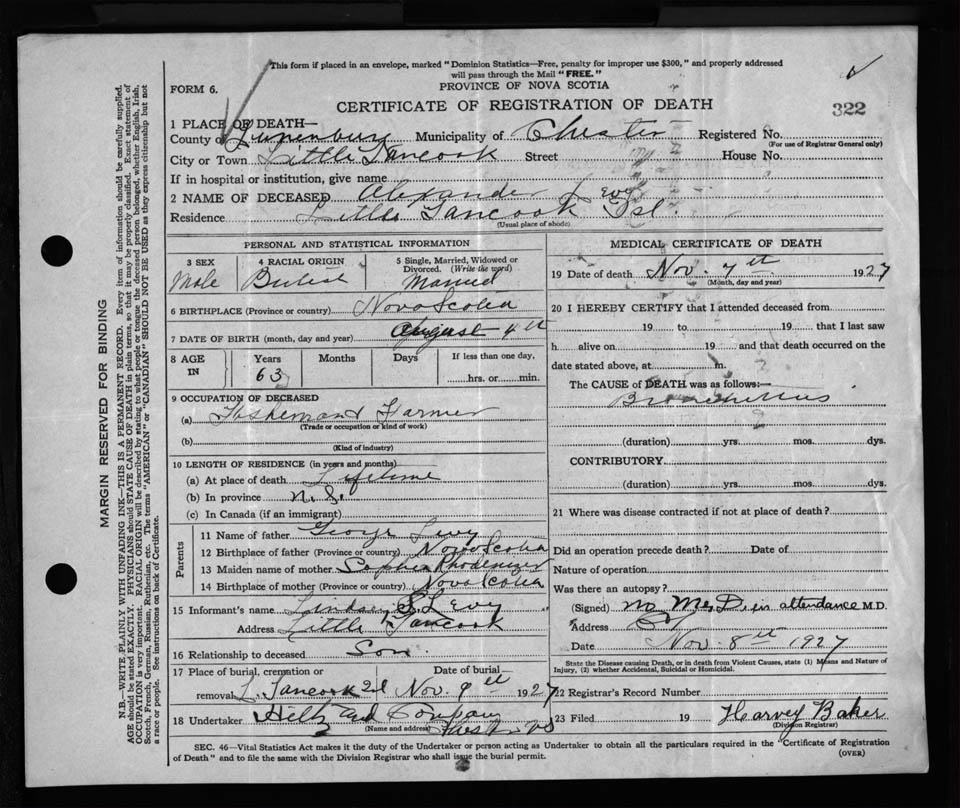 This form if placed in an envelope, marked "Dominion Statistics—Free, penalty for improper use $300," and properly addressed
will pass through the Mail "FREE."
FORM 6.
PROVINCE OF NOVA SCOTIA
CERTIFICATE OF REGISTRATION OF DEATH
322
1 PLACE OF DEATH—
County of Lunenburg Municipality of Chester Registered No.
(For use of Registrar General only)
City or Town Little Tancook Street House No.
If in hospital or institution, give name
2 NAME OF DECEASED Alexander Levy
Residence Little Tancook Isl.
(Usual place of abode)
PERSONAL AND STATISTICAL INFORMATION
3 SEX Male
4 RACIAL ORIGIN British
5 Single, Married, Widowed or Divorced. (Write the word) Married
6 BIRTHPLACE (Province or country) Nova Scotia
7 DATE OF BIRTH (month, day and year) August 4th
8 AGE IN Years Months Days If less than one day,
63 hrs. or min.
9 OCCUPATION OF DECEASED
(a) Fisherman & Farmer
(Trade or occupation or kind of work)
(b)
(Kind of industry)
10 LENGTH OF RESIDENCE (in years and months)
(a) At place of death Lifetime
(b) In province N.S.
(c) In Canada (if an immigrant)
Parents
11 Name of father George Levy
12 Birthplace of father (Province or country) Nova Scotia
13 Maiden name of mother Sophia Rhodenizer
14 Birthplace of mother (Province or country) Nova Scotia
15 Informant's name Lindsey S. Levy
Address Little Tancook
16 Relationship to deceased Son
17 Place of burial, cremation or removal L. Tancook Isl Date of burial Nov. 9th 1927
18 Undertaker Hiltz and Company
(Name and address) Chester NS
MEDICAL CERTIFICATE OF DEATH
19 Date of death Nov. 7th 1927
(Month, day and year)
20 I HEREBY CERTIFY that I attended deceased from
19 to 19 that I last saw
h alive on 19 and that death occurred on the
date stated above, at m.
The CAUSE of DEATH was as follows:—
(duration) yrs. mos. dys.
CONTRIBUTORY
(duration) yrs. mos. dys.
21 Where was disease contracted if not at place of death?
Did an operation precede death? Date of
Nature of operation
Was there an autopsy?
(Signed) no M.D. in attendance M.D.
Address
Date Nov. 8th 1927
State the Disease causing Death, or in death from Violent Causes, state (1) Means and Nature of
Injury, (2) whether Accidental, Suicidal or Homicidal.
22 Registrar's Record Number
23 Filed 19 Harvey Baker
(Division Registrar)
SEC. 46—Vital Statistics Act makes it the duty of the Undertaker or person acting as Undertaker to obtain all the particulars required in the "Certificate of Registration
of Death" and to file the same with the Division Registrar who shall issue the burial permit.
(OVER)
MARGIN RESERVED FOR BINDING
N.B.—WRITE PLAINLY WITH UNFADING INK—THIS IS A PERMANENT RECORD. Every item of information should be carefully supplied.
AGE should be stated EXACTLY. PHYSICIANS should STATE CAUSE OF DEATH in plain terms, so that it may be properly classified. Exact statement of
OCCUPATION is very important. RACIAL ORIGIN will be described by stating to what people or tongue the deceased person belonged, whether English, Irish,
Scotch, French, German, Russian, Ruthenian, etc. The terms "AMERICAN" or "CANADIAN" SHOULD NOT BE USED as they express citizenship but not
a race or people. See instructions on back of Certificate.